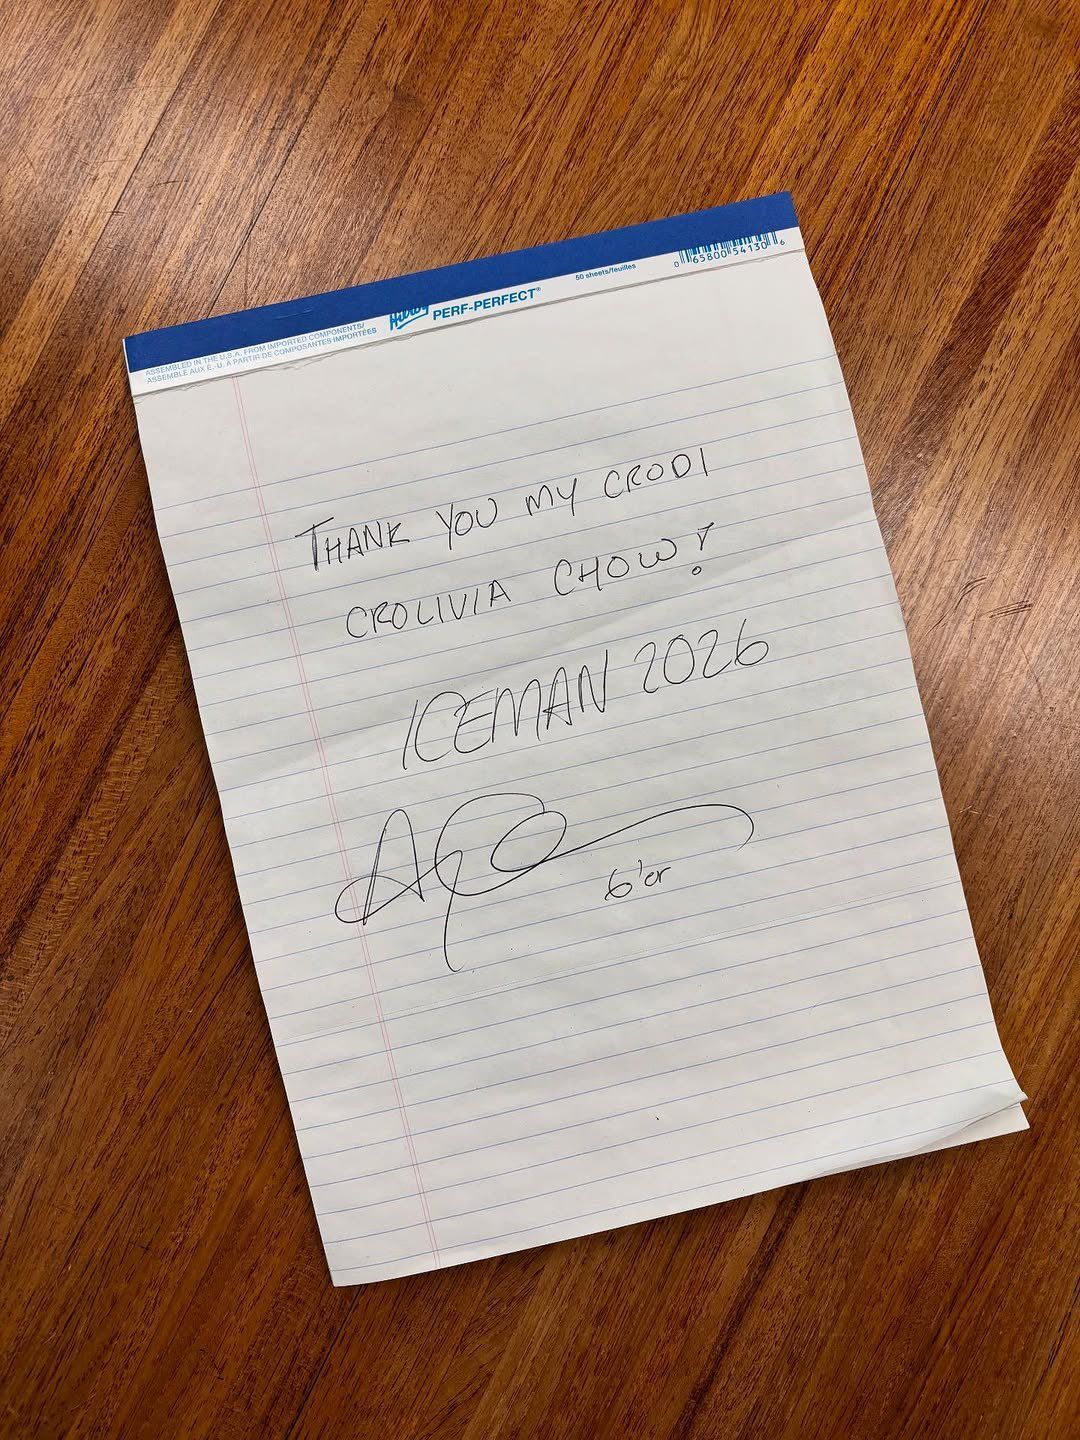 ASSEMBLED IN THE U.S.A. FROM IMPORTED COMPONENTS/
ASSEMBLÉ AUX É.-U. À PARTIR DE COMPOSANTES IMPORTÉES
Hilroy PERF-PERFECT®
50 sheets/feuilles
0 65800 54130 6
THANK YOU MY CRODI
CROLIVIA CHOW!
ICEMAN 2026
6'er